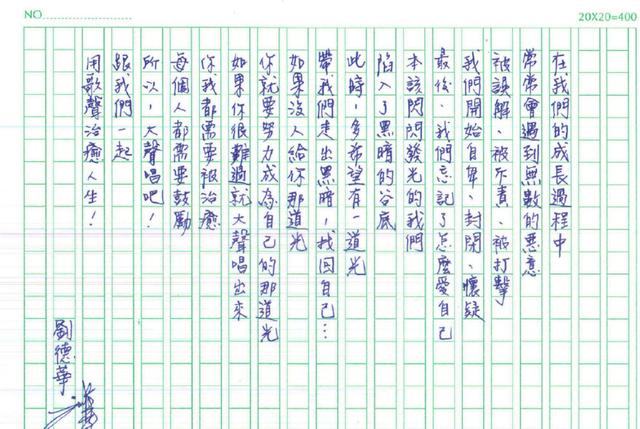 NO.
20X20=400
在我們的成長過程中
常常會遇到無數的惡意
被誤解、被斥責、被打擊
我們開始自卑、封閉、懷疑
最後，我們忘記了怎麼愛自己
本該閃閃發光的我們
陷入了黑暗的谷底
此時，多希望有一道光
帶我們走出黑暗，找回自己…
如果沒人給你那道光
你就要努力成為自己的那道光
如果你很難過就大聲唱出來
你我都需要被治癒
每個人都需要鼓勵
所以，大聲唱吧！
跟我們一起
用歌聲治癒人生！
劉德華